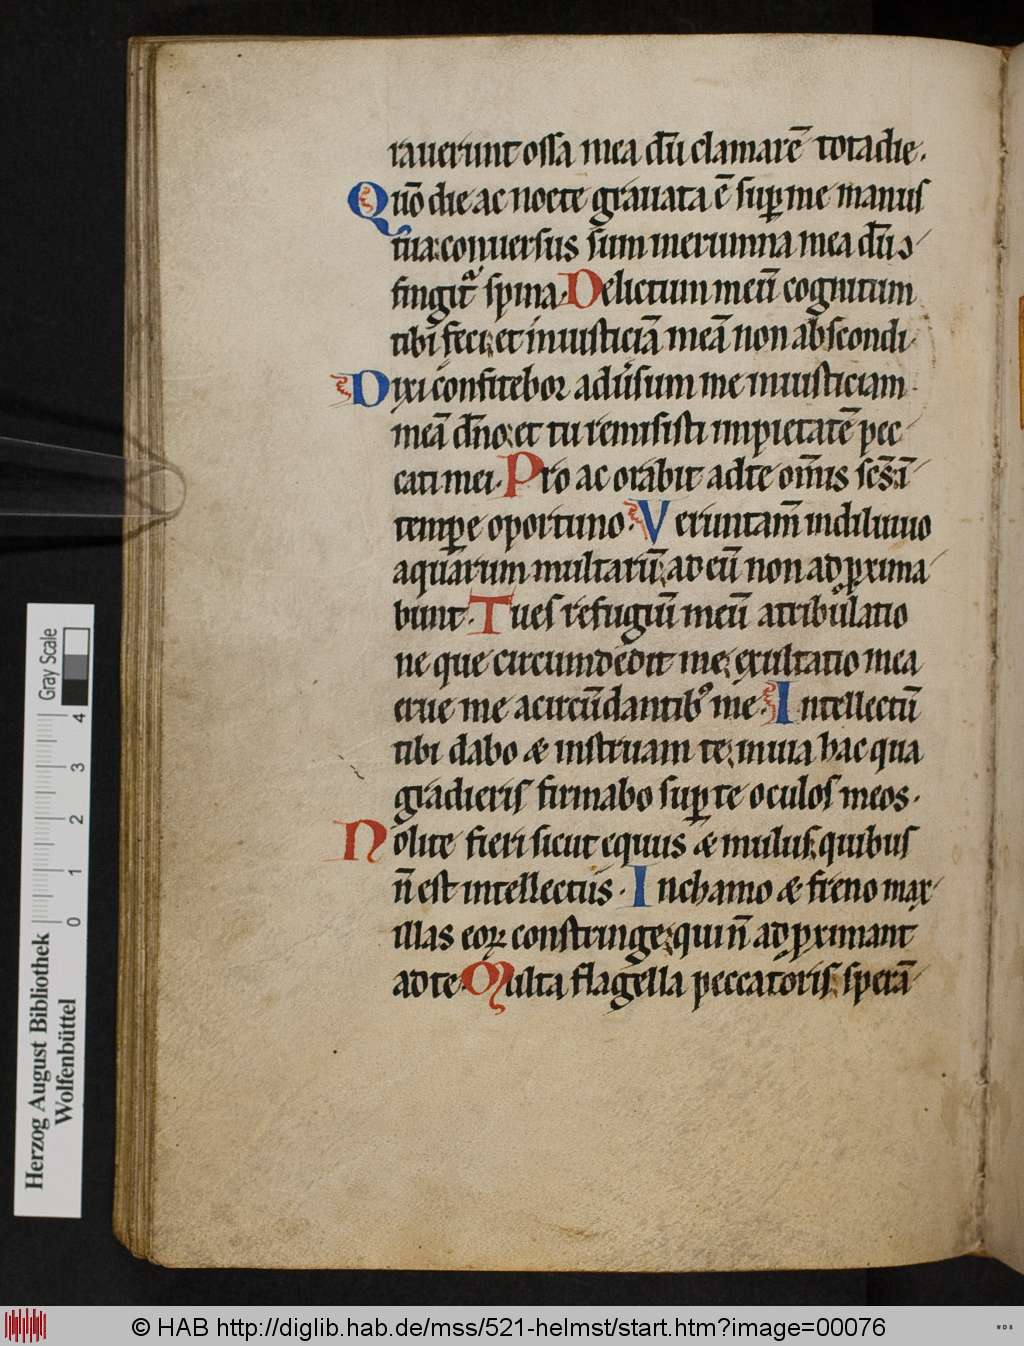 rauerunt ossa mea dū clamarē tota die.
Quō die ac nocte grauata ē sup me manus
tua: conuersus sum in erumna mea dū ɔ-
fingitᷓ spina. Delictum meū cognitum
tibi feci: et iniusticiā meā non abscondi.
Dixi confitebor aduͥsum me iniusticiam
meā dn̄o: et tu remisisti impietatē pec-
cati mei. Pro ac orabit ad te om̄is sc̄s: ī
tempe oportuno. Veruntam̄ in diluuio
aquarum multarū: ad eū non ad pxima-
bunt. Tu es refugiū meū a tribulatio
ne que circumdedit me: exultatio mea
erue me a circūdantibꝰ me. Intellectū
tibi dabo & instruam te: in uia hac qua
gradieris firmabo sup te oculos meos.
Nolite fieri sicut equus & mulus: quibus
n̄ est intellectus. In chamo & freno max-
illas eoꝝ constringe: qui n̄ ad pximant
ad te. Multa flagella peccatoris: sperā-
Herzog August Bibliothek
Wolfenbüttel
0 1 2 3 4
Gray Scale
© HAB http://diglib.hab.de/mss/521-helmst/start.htm?image=00076